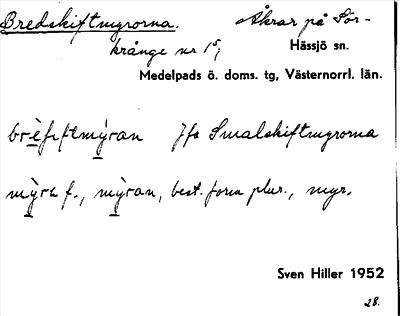 Bredskiftmyrorna. Åkrar på Sör-
krånge nr 1⁵,
Hässjö sn.
Medelpads ö. doms. tg, Västernorrl. län.
brèfiftmỳran Jfr Smalskiftmyrorna
mỳra f., mỳran, best. form plur., myr.
Sven Hiller 1952
28.